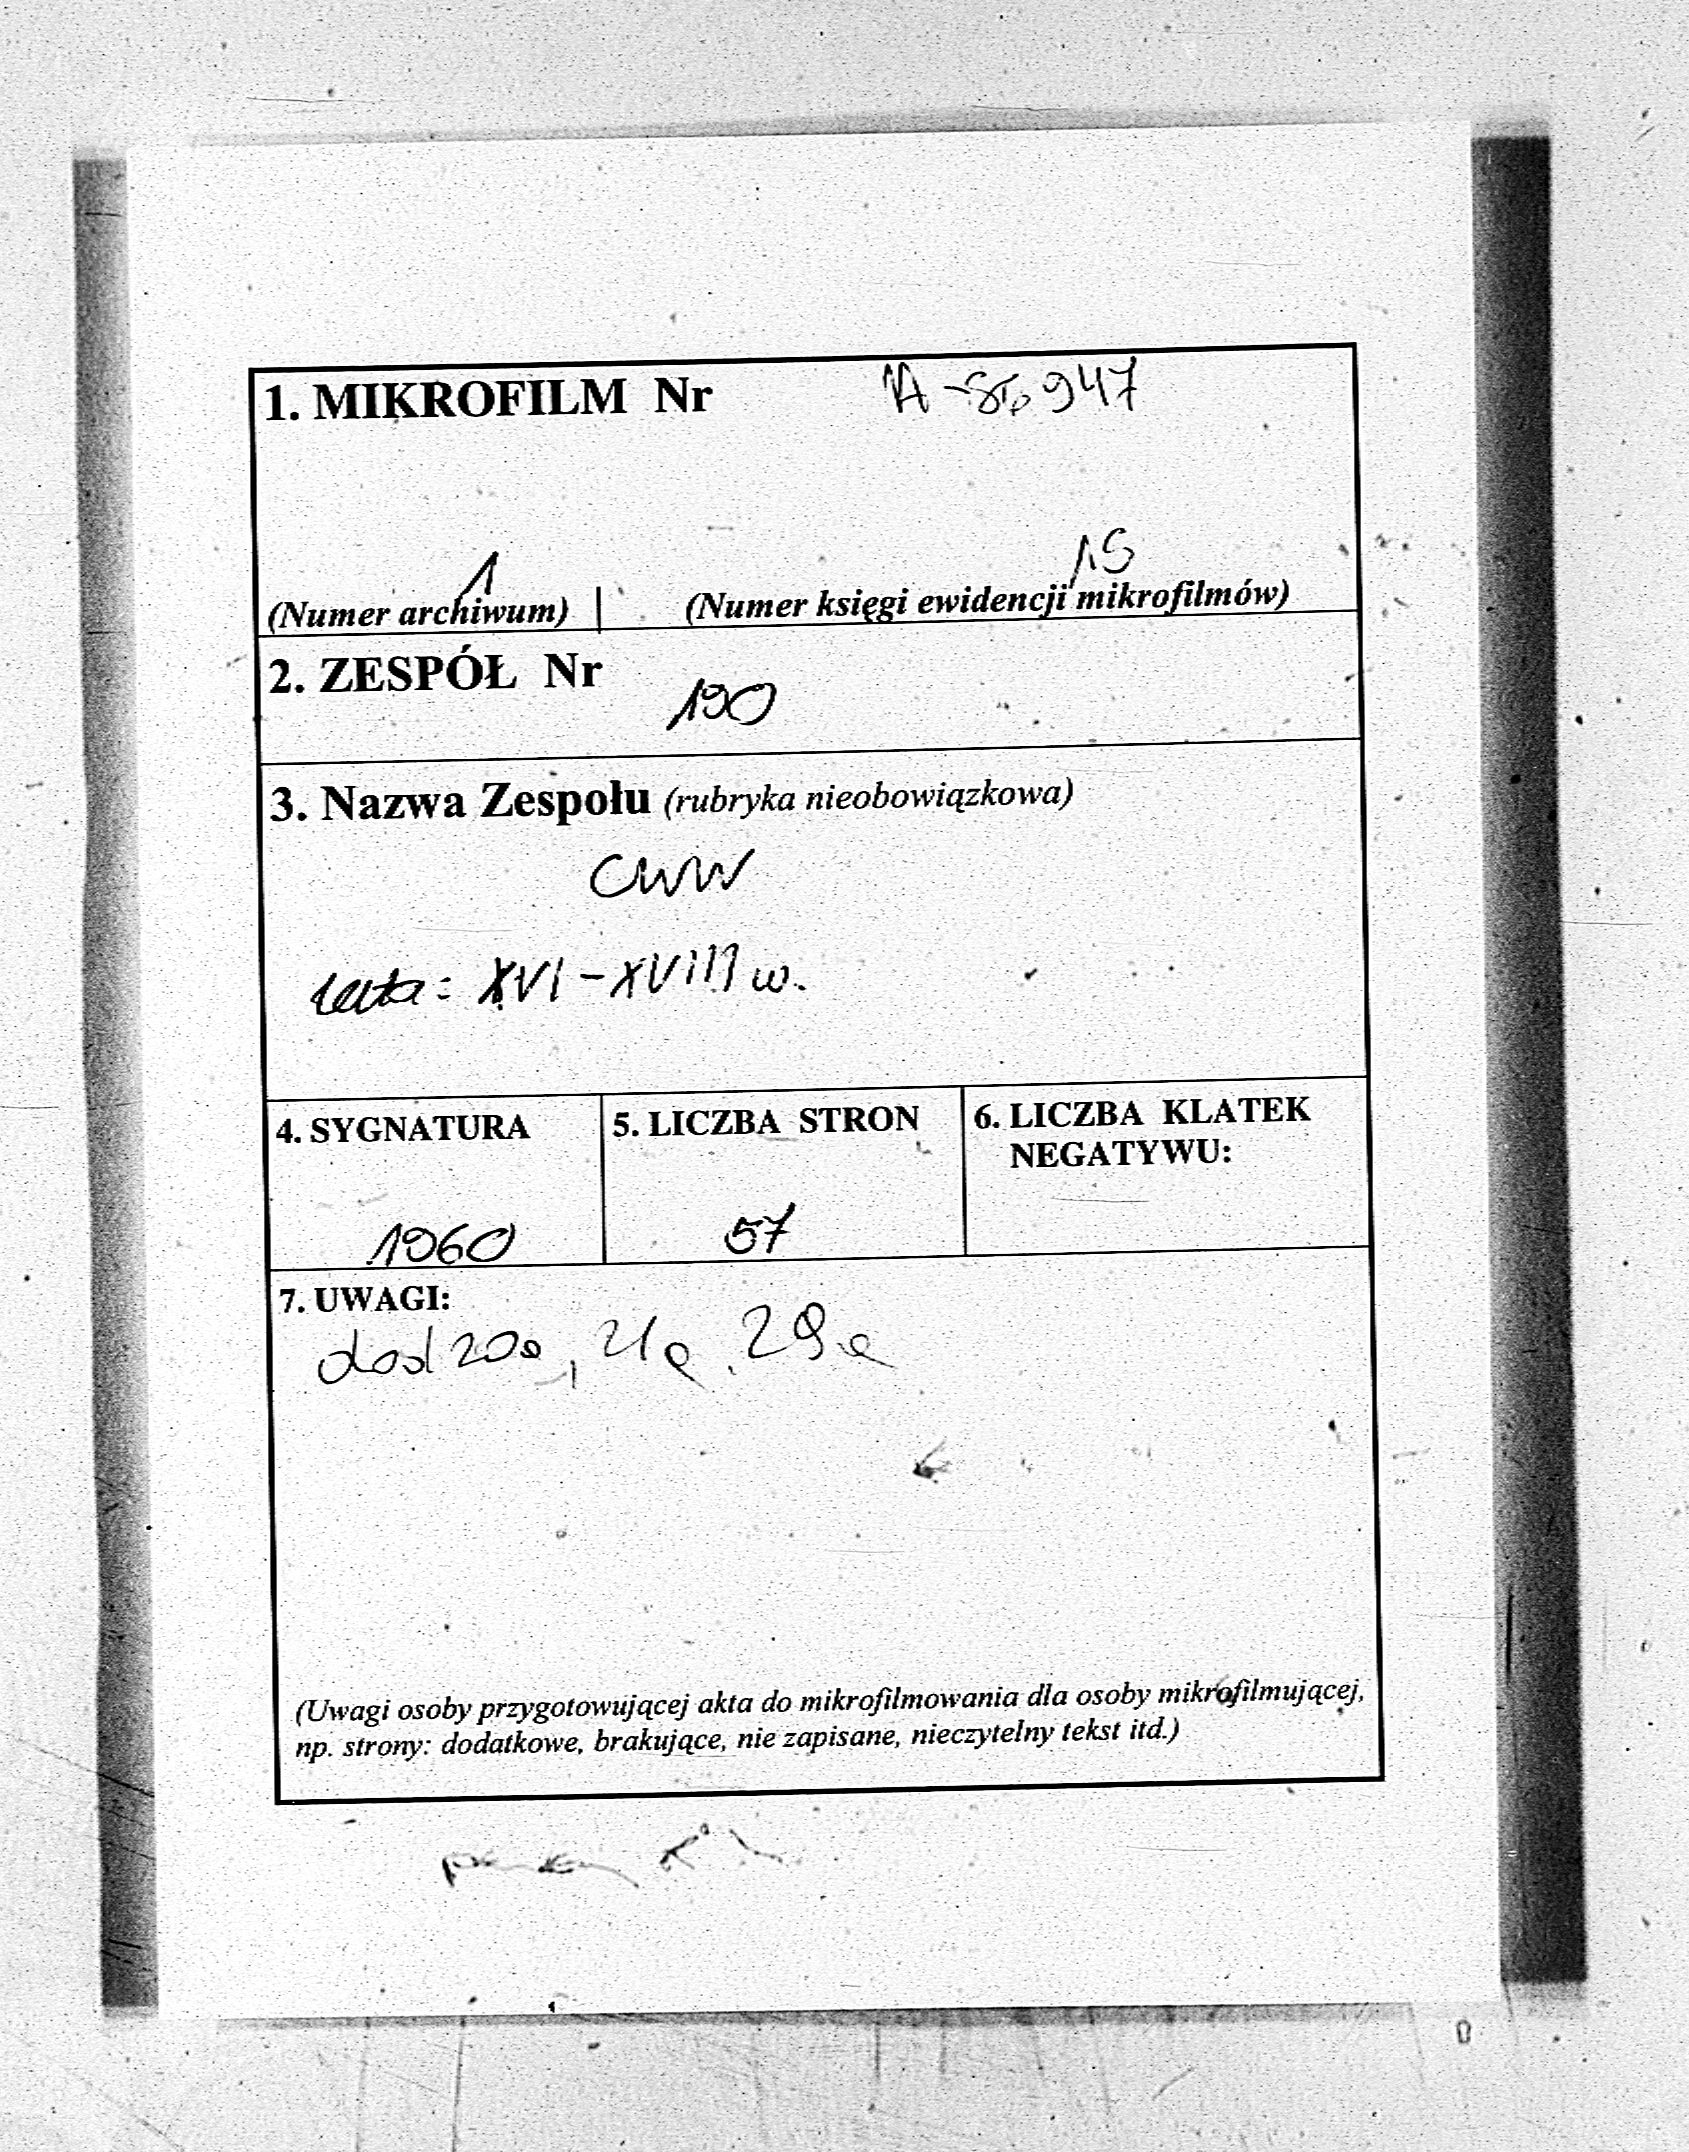 1. MIKROFILM Nr 947
1 15
(Numer archiwum) | (Numer księgi ewidencji mikrofilmów)
2. ZESPÓŁ Nr
190
3. Nazwa Zespołu (rubryka nieobowiązkowa)
CWW
lata: XVI - XVIII w.
4. SYGNATURA 5. LICZBA STRON 6. LICZBA KLATEK
NEGATYWU:
1960 57
7. UWAGI:
dod 20a, 21a, 29a
(Uwagi osoby przygotowującej akta do mikrofilmowania dla osoby mikrofilmującej,
np. strony: dodatkowe, brakujące, nie zapisane, nieczytelny tekst itd.)